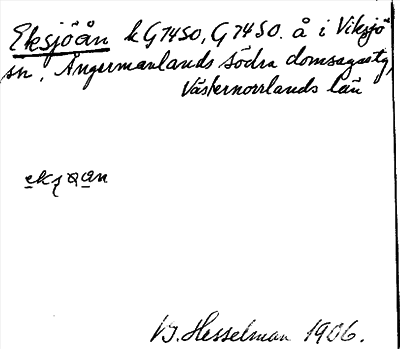 Eksjöån k G74SO, G74SO. å i Viksjö
sn. Ångermanlands södra domsagas tg,
Västernorrlands län
Hesselman 1906.